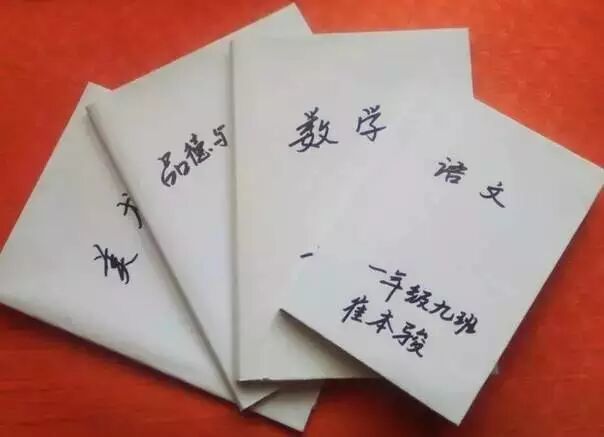 美
品德与
数学
一
语文
一年级九班
崔本骏